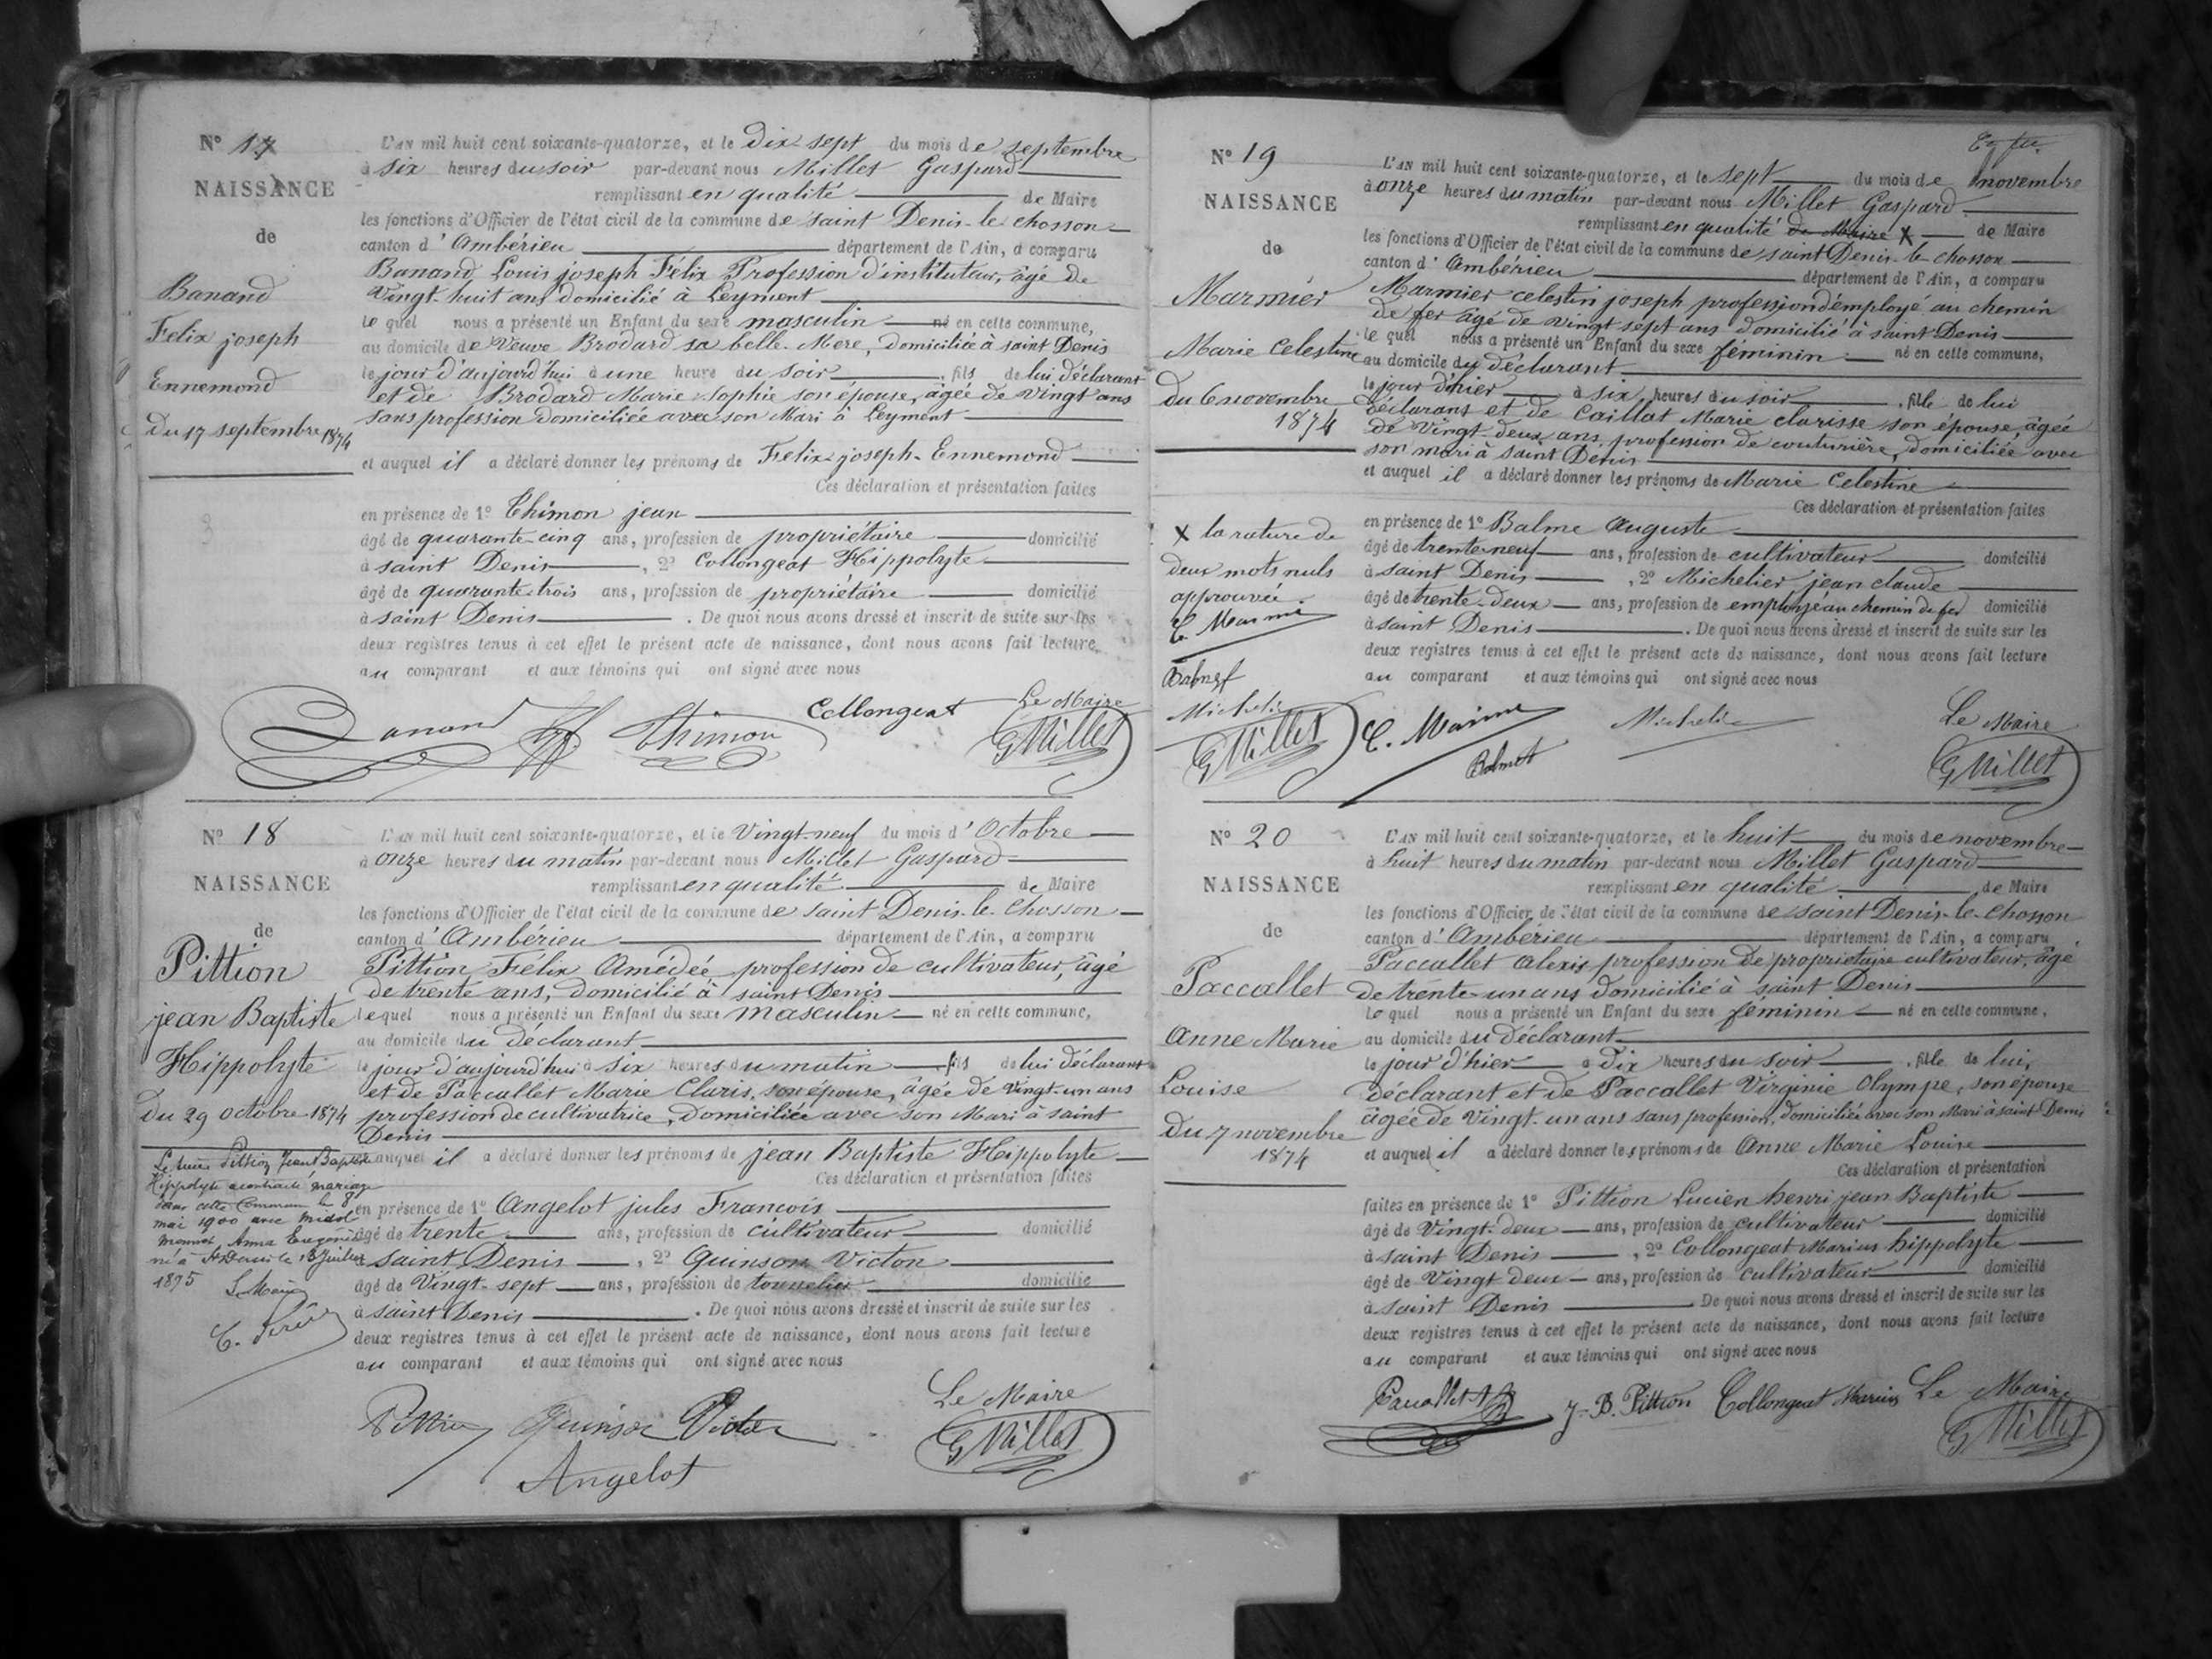 N° 17
NAISSANCE
de
Banand
Felix joseph
Ennemond
Du 17 septembre 1874
L'AN mil huit cent soixante-quatorze, et le Dix sept du mois de septembre
à six heures du soir par-devant nous Millet Gaspard
remplissant en qualité de Maire
les fonctions d'Officier de l'état civil de la commune de saint Denis-le chosson
canton d'Ambérieu département de l'Ain, a comparu
Banand Louis joseph Félix Profession d'instituteur, âgé de
Vingt-huit ans domicilié à Leyment
lequel nous a présenté un Enfant du sexe masculin né en cette commune,
au domicile de Veuve Brodard sa belle-Mere, domiciliée à saint Denis
le jour d'aujourd'hui à une heure du soir, fils de lui déclarant
et de Brodard Marie Sophie son épouse, âgée de vingt ans
sans profession domiciliée avec son Mari à Leyment
et auquel il a déclaré donner les prénoms de Felix-joseph-Ennemond
Ces déclaration et présentation faites
en présence de 1° Thimon jean
âgé de quarante-cinq ans, profession de propriétaire domicilié
à saint Denis, 2° Collongeat Hippolyte
âgé de quarante-trois ans, profession de propriétaire domicilié
à saint Denis. De quoi nous avons dressé et inscrit de suite sur les
deux registres tenus à cet effet le présent acte de naissance, dont nous avons fait lecture
au comparant et aux témoins qui ont signé avec nous
Banand Thimon Collongeat Le Maire
G Millet
N° 18
NAISSANCE
de
Pittion
jean Baptiste
Hippolyte
Du 29 octobre 1874
Pittion Jean Baptiste
Hippolyte a contracté mariage
dans cette Commune le 8
mai 1900 avec
Anna Eugénie
né à St Denis le 18 Juillet
1875 Le Maire
L'AN mil huit cent soixante-quatorze, et le Vingt-neuf du mois d'Octobre
à onze heures du matin par-devant nous Millet Gaspard
remplissant en qualité de Maire
les fonctions d'Officier de l'état civil de la commune de saint Denis-le-Chosson
canton d'Ambérieu département de l'Ain, a comparu
Pittion Félix Amédée profession de cultivateur, âgé
de trente ans, domicilié à saint Denis
lequel nous a présenté un Enfant du sexe masculin né en cette commune,
au domicile du déclarant
le jour d'aujourd'hui à six heures du matin, fils de lui déclarant
et de Paccallet Marie Claris, son épouse, âgée de Vingt-un ans
profession de cultivatrice, domiciliée avec son Mari à saint
Denis
et auquel il a déclaré donner les prénoms de jean Baptiste Hippolyte
Ces déclaration et présentation faites
en présence de 1° Angelot jules Francois
âgé de trente ans, profession de cultivateur domicilié
à saint Denis, 2° Quinson Victor
âgé de Vingt-sept ans, profession de tonnelier domicilié
à saint Denis. De quoi nous avons dressé et inscrit de suite sur les
deux registres tenus à cet effet le présent acte de naissance, dont nous avons fait lecture
au comparant et aux témoins qui ont signé avec nous
Pittion Quinson Victor Le Maire
Angelot G Millet
N° 19
NAISSANCE
de
Marmier
Marie Celestine
Du 6 novembre
1874
X la rature de
deux mots nuls
approuvée.
Michelie
G Millet
L'AN mil huit cent soixante-quatorze, et le sept du mois de novembre
à onze heures du matin par-devant nous Millet Gaspard
remplissant en qualité de Maire X de Maire
les fonctions d'Officier de l'état civil de la commune de saint Denis-le-chosson
canton d'Ambérieu département de l'Ain, a comparu
Marmier celestin joseph profession d'employé au chemin
de fer âgé de vingt sept ans domicilié à saint Denis
lequel nous a présenté un Enfant du sexe féminin né en cette commune,
au domicile du déclarant
le jour d'hier à six heures du soir, fille de lui
déclarant et de Caillat Marie clarisse son épouse, âgée
de Vingt-deux ans, profession de couturière, domiciliée avec
son mari à saint Denis
et auquel il a déclaré donner les prénoms de Marie Celestine
Ces déclaration et présentation faites
en présence de 1° Balme Auguste
âgé de trente-neuf ans, profession de cultivateur domicilié
à saint Denis, 2° Michelier jean claude
âgé de trente-deux ans, profession de employé au chemin de fer domicilié
à saint Denis. De quoi nous avons dressé et inscrit de suite sur les
deux registres tenus à cet effet le présent acte de naissance, dont nous avons fait lecture
au comparant et aux témoins qui ont signé avec nous
Michelie Le Maire
G Millet
N° 20
NAISSANCE
de
Paccallet
Anne Marie
Louise
Du 7 novembre
1874
L'AN mil huit cent soixante-quatorze, et le huit du mois de novembre
à huit heures du matin par-devant nous Millet Gaspard
remplissant en qualité de Maire
les fonctions d'Officier de l'état civil de la commune de saint Denis-le-Chosson
canton d'Ambérieu département de l'Ain, a comparu
Paccallet Alexis profession de propriétaire cultivateur, âgé
de trente-un ans domicilié à saint Denis
lequel nous a présenté un Enfant du sexe féminin né en cette commune,
au domicile du déclarant
le jour d'hier à Dix heures du soir, fille de lui,
déclarant et de Paccallet Virginie Olympe, son épouse
âgée de Vingt-un ans sans profession, domiciliée avec son Mari à saint Denis
et auquel il a déclaré donner les prénoms de Anne Marie Louise
Ces déclaration et présentation
faites en présence de 1° Pittion Lucien henri jean Baptiste
âgé de Vingt-deux ans, profession de cultivateur domicilié
à saint Denis, 2° Collongeat Marius hippolyte
âgé de Vingt deux ans, profession de cultivateur domicilié
à saint Denis De quoi nous avons dressé et inscrit de suite sur les
deux registres tenus à cet effet le présent acte de naissance, dont nous avons fait lecture
au comparant et aux témoins qui ont signé avec nous
Paccallet J-B. Pittion Collongeat Marius Le Maire
G Millet